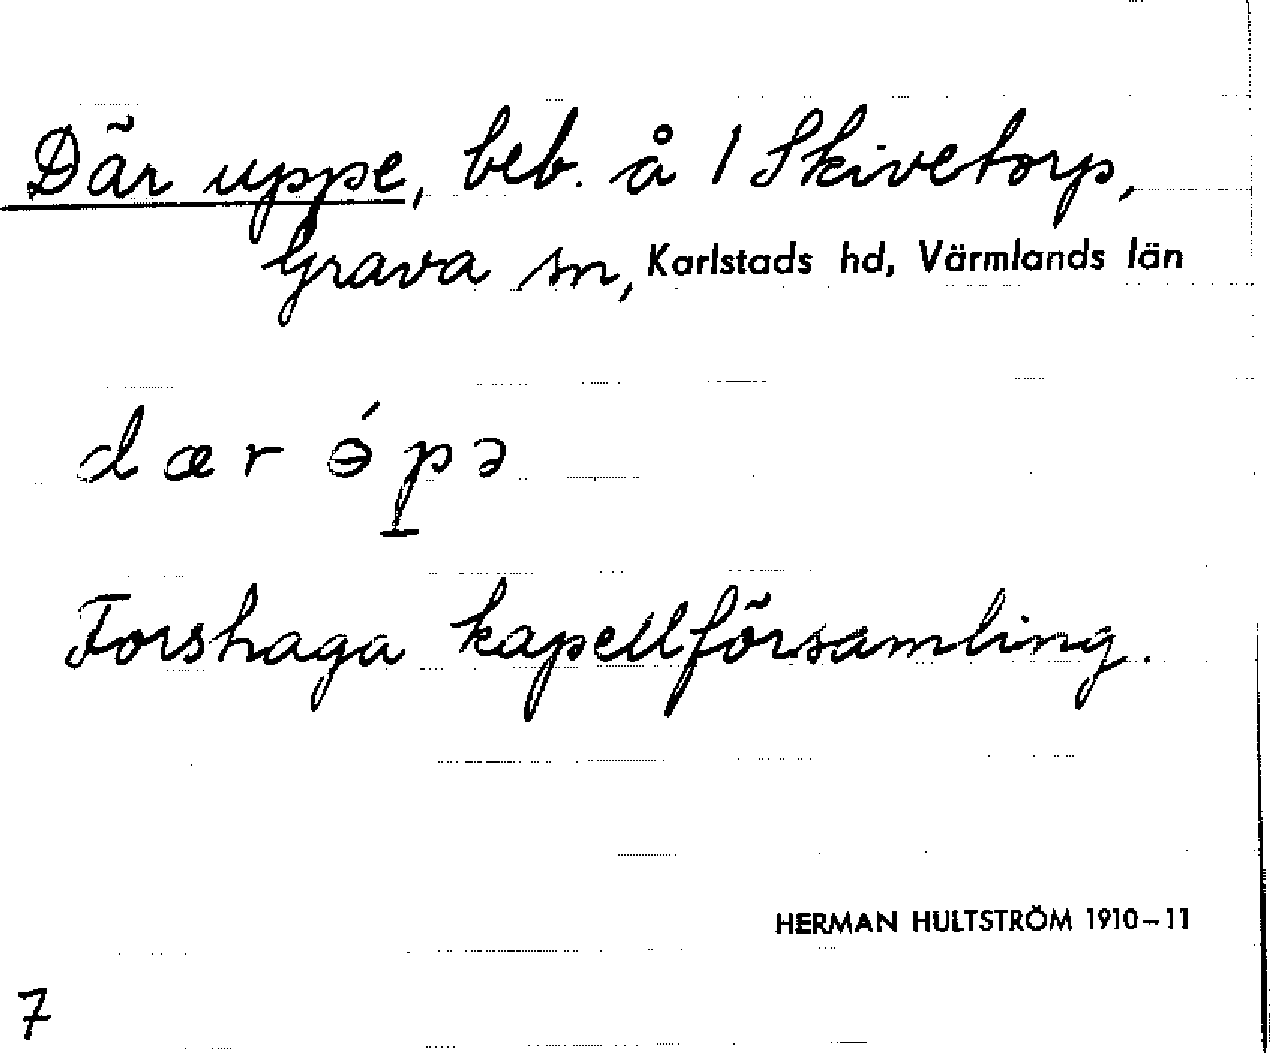 Där uppe, beb. å 1 Skivetorp,
Grava sn, Karlstads hd, Värmlands län
dær ɵ́p̠ə
Forshaga kapellförsamling.
HERMAN HULTSTRÖM 1910–11
7